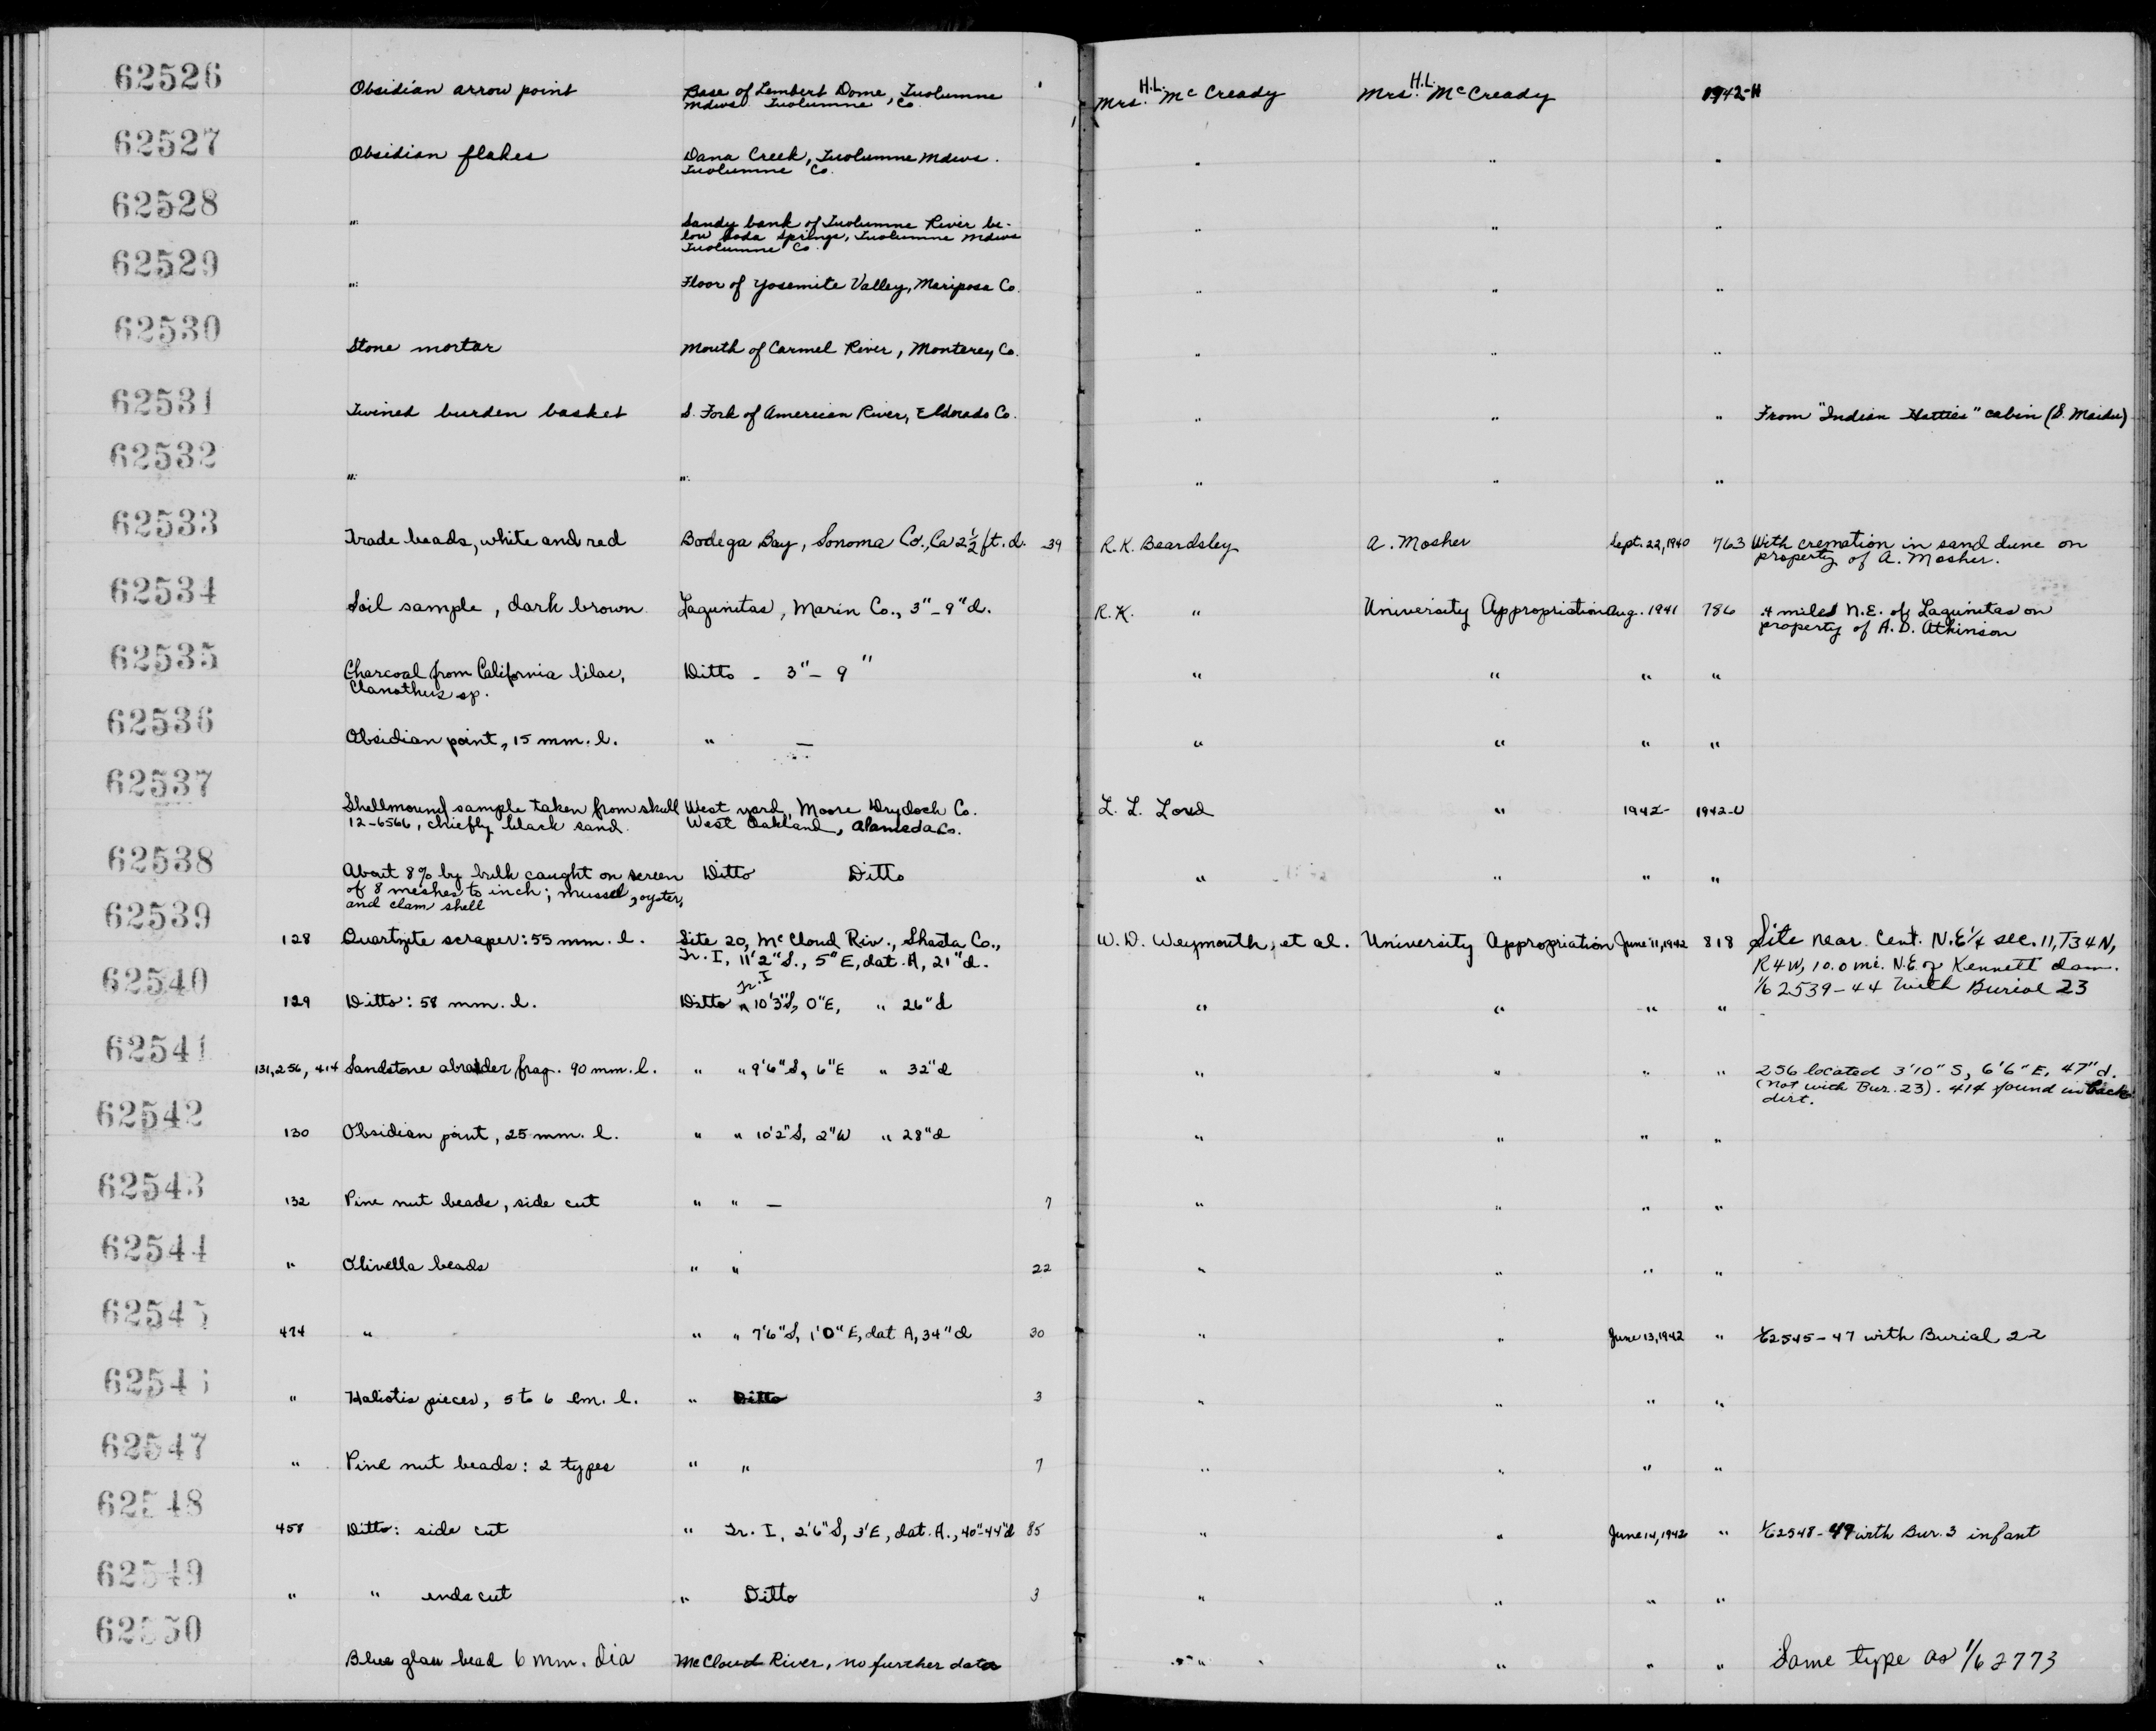 62526 Obsidian arrow point Base of Lembert Dome, Tuolumne Mrs. H.L. McCready Mrs. H.L. McCready 1942-H
Mdws. Tuolumne Co.
62527 Obsidian flakes Dana Creek, Tuolumne Mdws. " " "
Tuolumne Co.
62528 " Sandy bank of Tuolumne River be- " " "
low Soda Springs, Tuolumne Mdws
Tuolumne Co.
62529 " Floor of Yosemite Valley, Mariposa Co. " " "
62530 Stone mortar Mouth of Carmel River, Monterey Co. " " "
62531 Twined burden basket S. Fork of American River, Eldorado Co. " " " From "Indian Hattie's" cabin (S. Maidu)
62532 " " " " "
62533 Trade beads, white and red Bodega Bay, Sonoma Co., Ca 2½ ft. d. 39 R.K. Beardsley A. Mosher Sept. 22, 1940 763 With cremation in sand dune on
property of A. Mosher.
62534 Soil sample, dark brown Lagunitas, Marin Co., 3"-9" d. R.K. " University Appropriation Aug. 1941 786 .4 miles N.E. of Lagunitas on
property of A.D. Atkinson
62535 Charcoal from California lilac, Ditto - 3"- 9" " " " "
Clanothus sp.
62536 Obsidian point, 15 mm. l. " — " " " "
62537 Shellmound sample taken from skull West yard, Moore Drydock Co. L. L. Loud " 1942- 1942-U
12-6566, chiefly black sand. West Oakland, Alameda Co.
62538 About 8% by bulk caught on screen Ditto Ditto " " " "
of 8 meshes to inch; mussel, oyster,
and clam shell
62539 128 Quartzite scraper: 55 mm. l. Site 20, McCloud Riv., Shasta Co., W.D. Weymouth, et al. University Appropriation June 11, 1942 818 Site near Cent. N.E¼ sec. 11, T34N,
Tr. I, 11'2"S., 5"E, dat. A, 21"d. R4W, 10.0 mi. N.E. of Kennett dam.
1/62539-44 with Burial 23
62540 129 Ditto: 58 mm. l. Ditto Tr. I 10'3"S, 0"E, " 26"d " " " "
62541 131, 256, 414 Sandstone abrader frag. 90 mm. l. " " 9'6"S, 6"E " 32"d " " " " 256 located 3'10"S, 6'6"E, 47"d.
(not with Bur. 23). 414 found in back
dirt.
62542 130 Obsidian point, 25 mm. l. " " 10'2"S, 2"W " 28"d " " " "
62543 132 Pine nut beads, side cut " " — 7 " " " "
62544 " Olivella beads " " 22 " " " "
62545 474 " " " 7'6"S, 1'0"E, dat A, 34"d 30 " " June 13, 1942 " 1/62545-47 with Burial 22
62546 " Haliotis pieces, 5 to 6 cm. l. " Ditto 3 " " " "
62547 " Pine nut beads: 2 types " " 7 " " " "
62548 458 Ditto: side cut " Tr. I, 2'6"S, 3'E, dat. A., 40"-44"d 85 " " June 14, 1942 " 1/62548-49 with Bur. 3 infant
62549 " " ends cut " Ditto 3 " " " "
62550 Blue glass bead 6 mm. dia McCloud River, no further data " " " " Same type as 1/62773